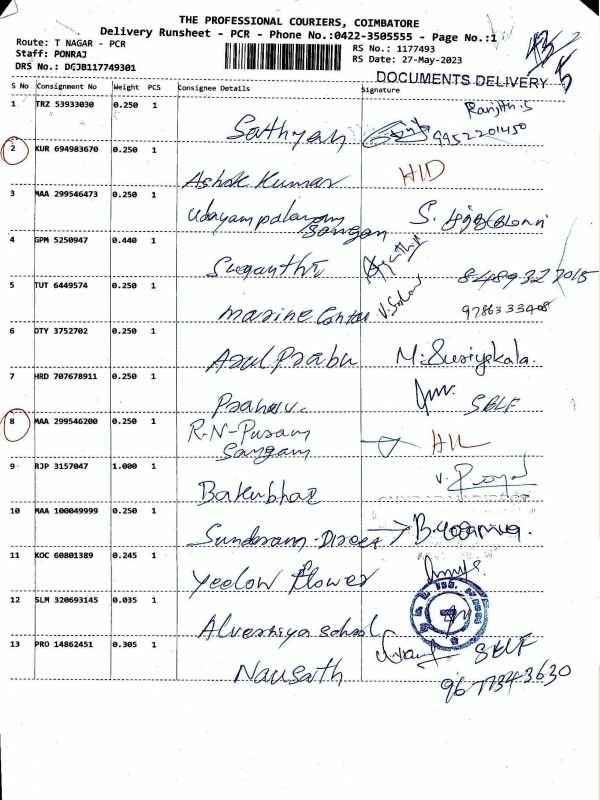 THE PROFESSIONAL COURIERS, COIMBATORE
Delivery Runsheet - PCR - Phone No.:0422-3505555 - Page No.:1
Route: T NAGAR - PCR
Staff: PONRAJ
DRS No.: DGJB117749301
RS No.: 1177493
RS Date: 27-May-2023
DOCUMENTS DELIVERY
S No Consignment No Weight PCS Consignee Details Signature
1 TRZ 53933030 0.250 1 Sathyan Ranjith.S 9952201450
2 KUR 694983670 0.250 1 Ashok Kumar
3 MAA 299546473 0.250 1 Udayampalayam Sangam S.
4 GPM 5250947 0.440 1 Suganthi 8489327015
5 TUT 6449574 0.250 1 Marine Contai 9786333408
6 OTY 3752702 0.250 1 Arul Prabu M. Suriyakala.
7 HRD 707678911 0.250 1 SELF
8 MAA 299546200 0.250 1 R.N-Puram Sangam
9 RJP 3157047 1.000 1 V.
10 MAA 100049999 0.250 1 Sundaram-Direct
11 KOC 60801389 0.245 1 Yeelow flower
12 SLM 320693145 0.035 1 school
13 PRO 14862451 0.305 1 Nausath SELF
9677343630